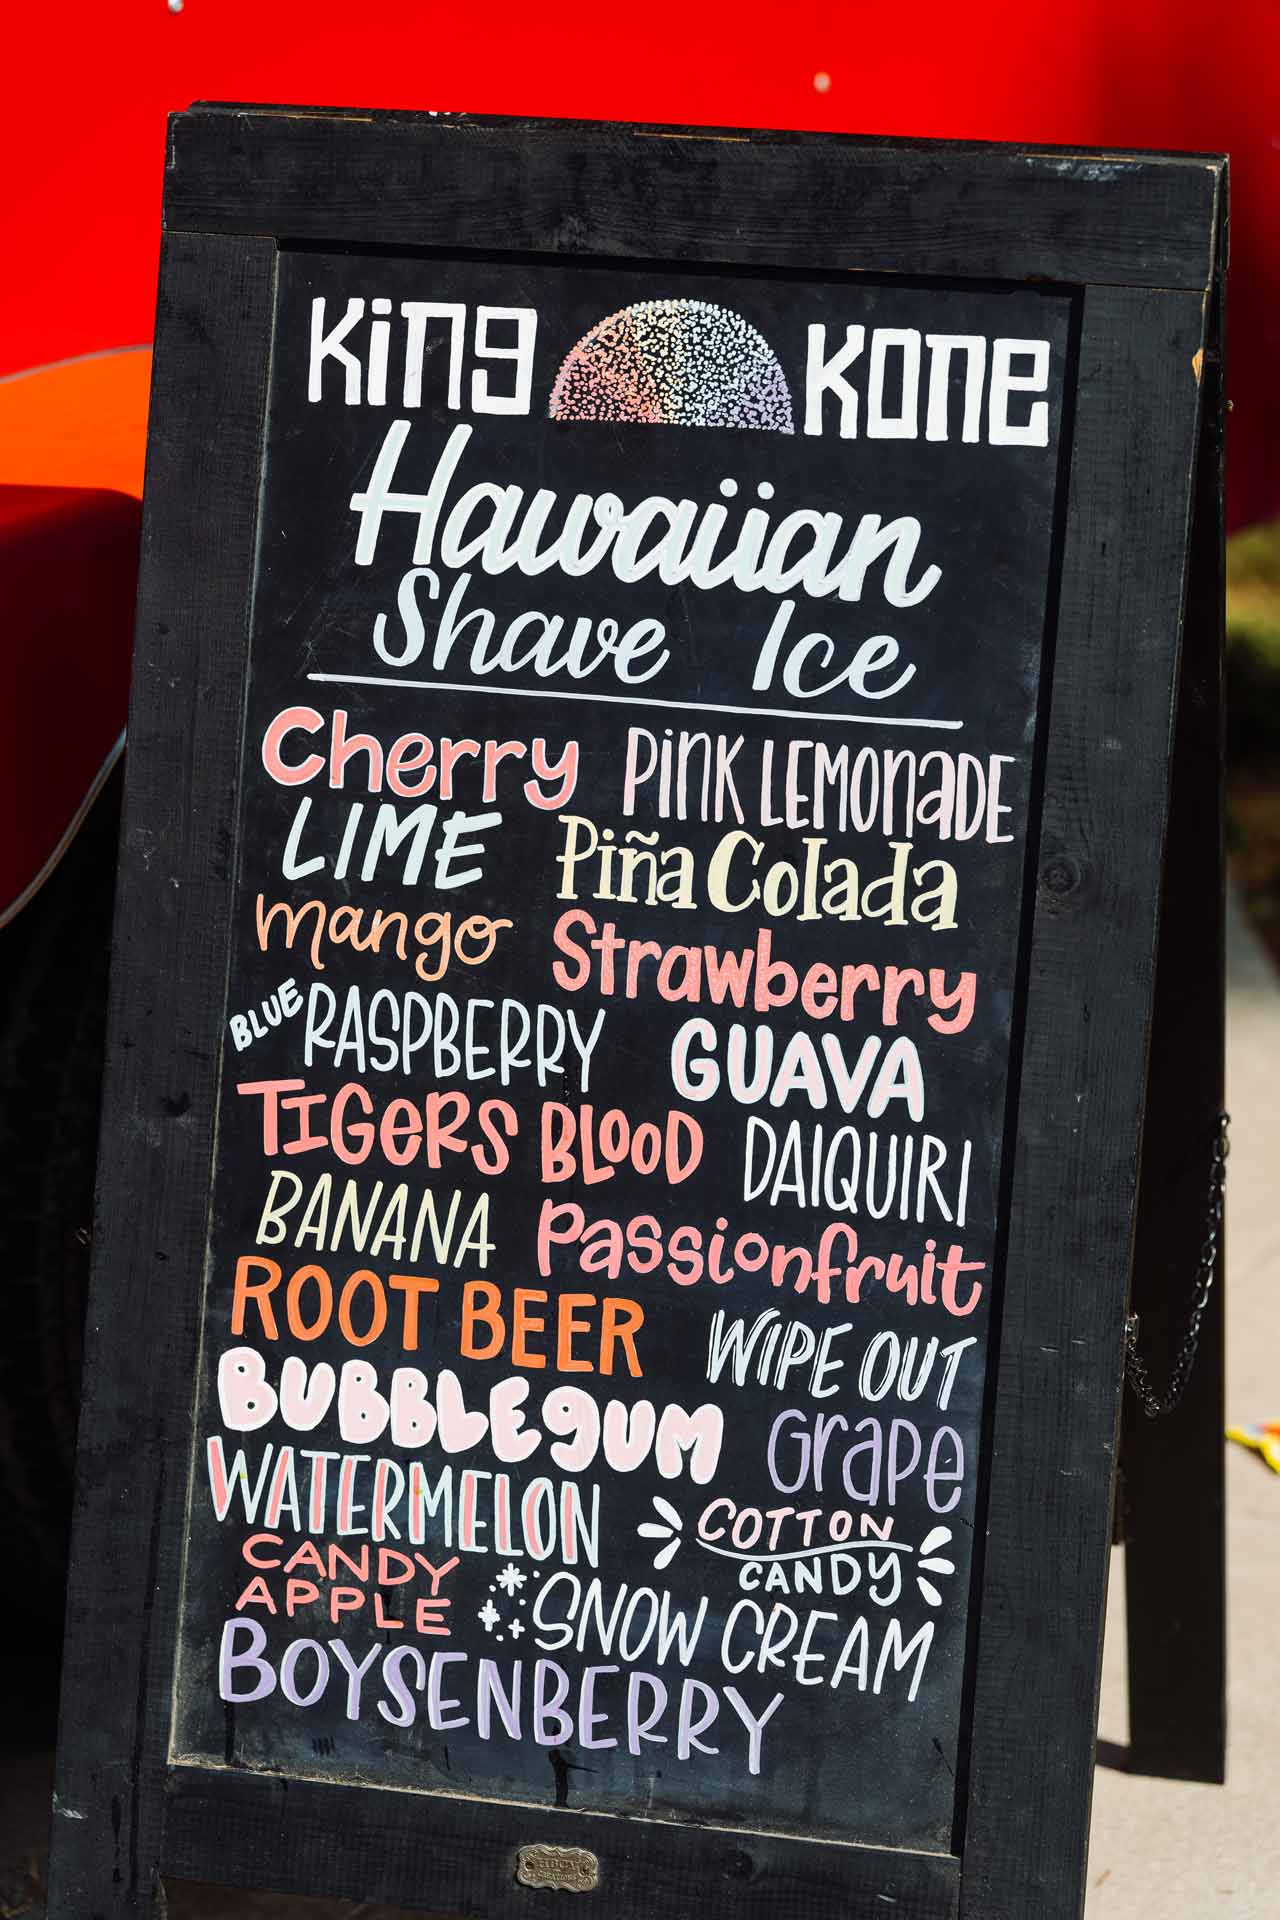 King Kone
Hawaiian
Shave Ice
Cherry PINK LEMONADE
LIME Piña Colada
mango Strawberry
BLUE RASPBERRY GUAVA
TIGERS BLOOD DAIQUIRI
BANANA Passionfruit
ROOT BEER WIPE OUT
BUBBLEGUM Grape
WATERMELON COTTON
CANDY
CANDY
APPLE SNOW CREAM
BOYSENBERRY